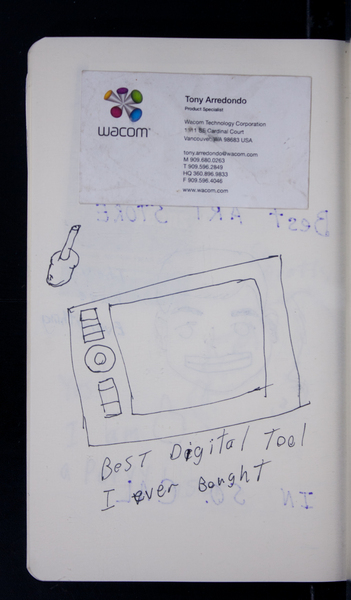 Tony Arredondo
Product Specialist
wacom
Wacom Technology Corporation
1311 SE Cardinal Court
Vancouver, WA 98683 USA
tony.arredondo@wacom.com
M 909.680.0263
T 909.596.2849
HQ 360.896.9833
F 909.596.4046
www.wacom.com
BEST ART STORE
BEST Digital Tool
I ever Bought
IN SO. CAL